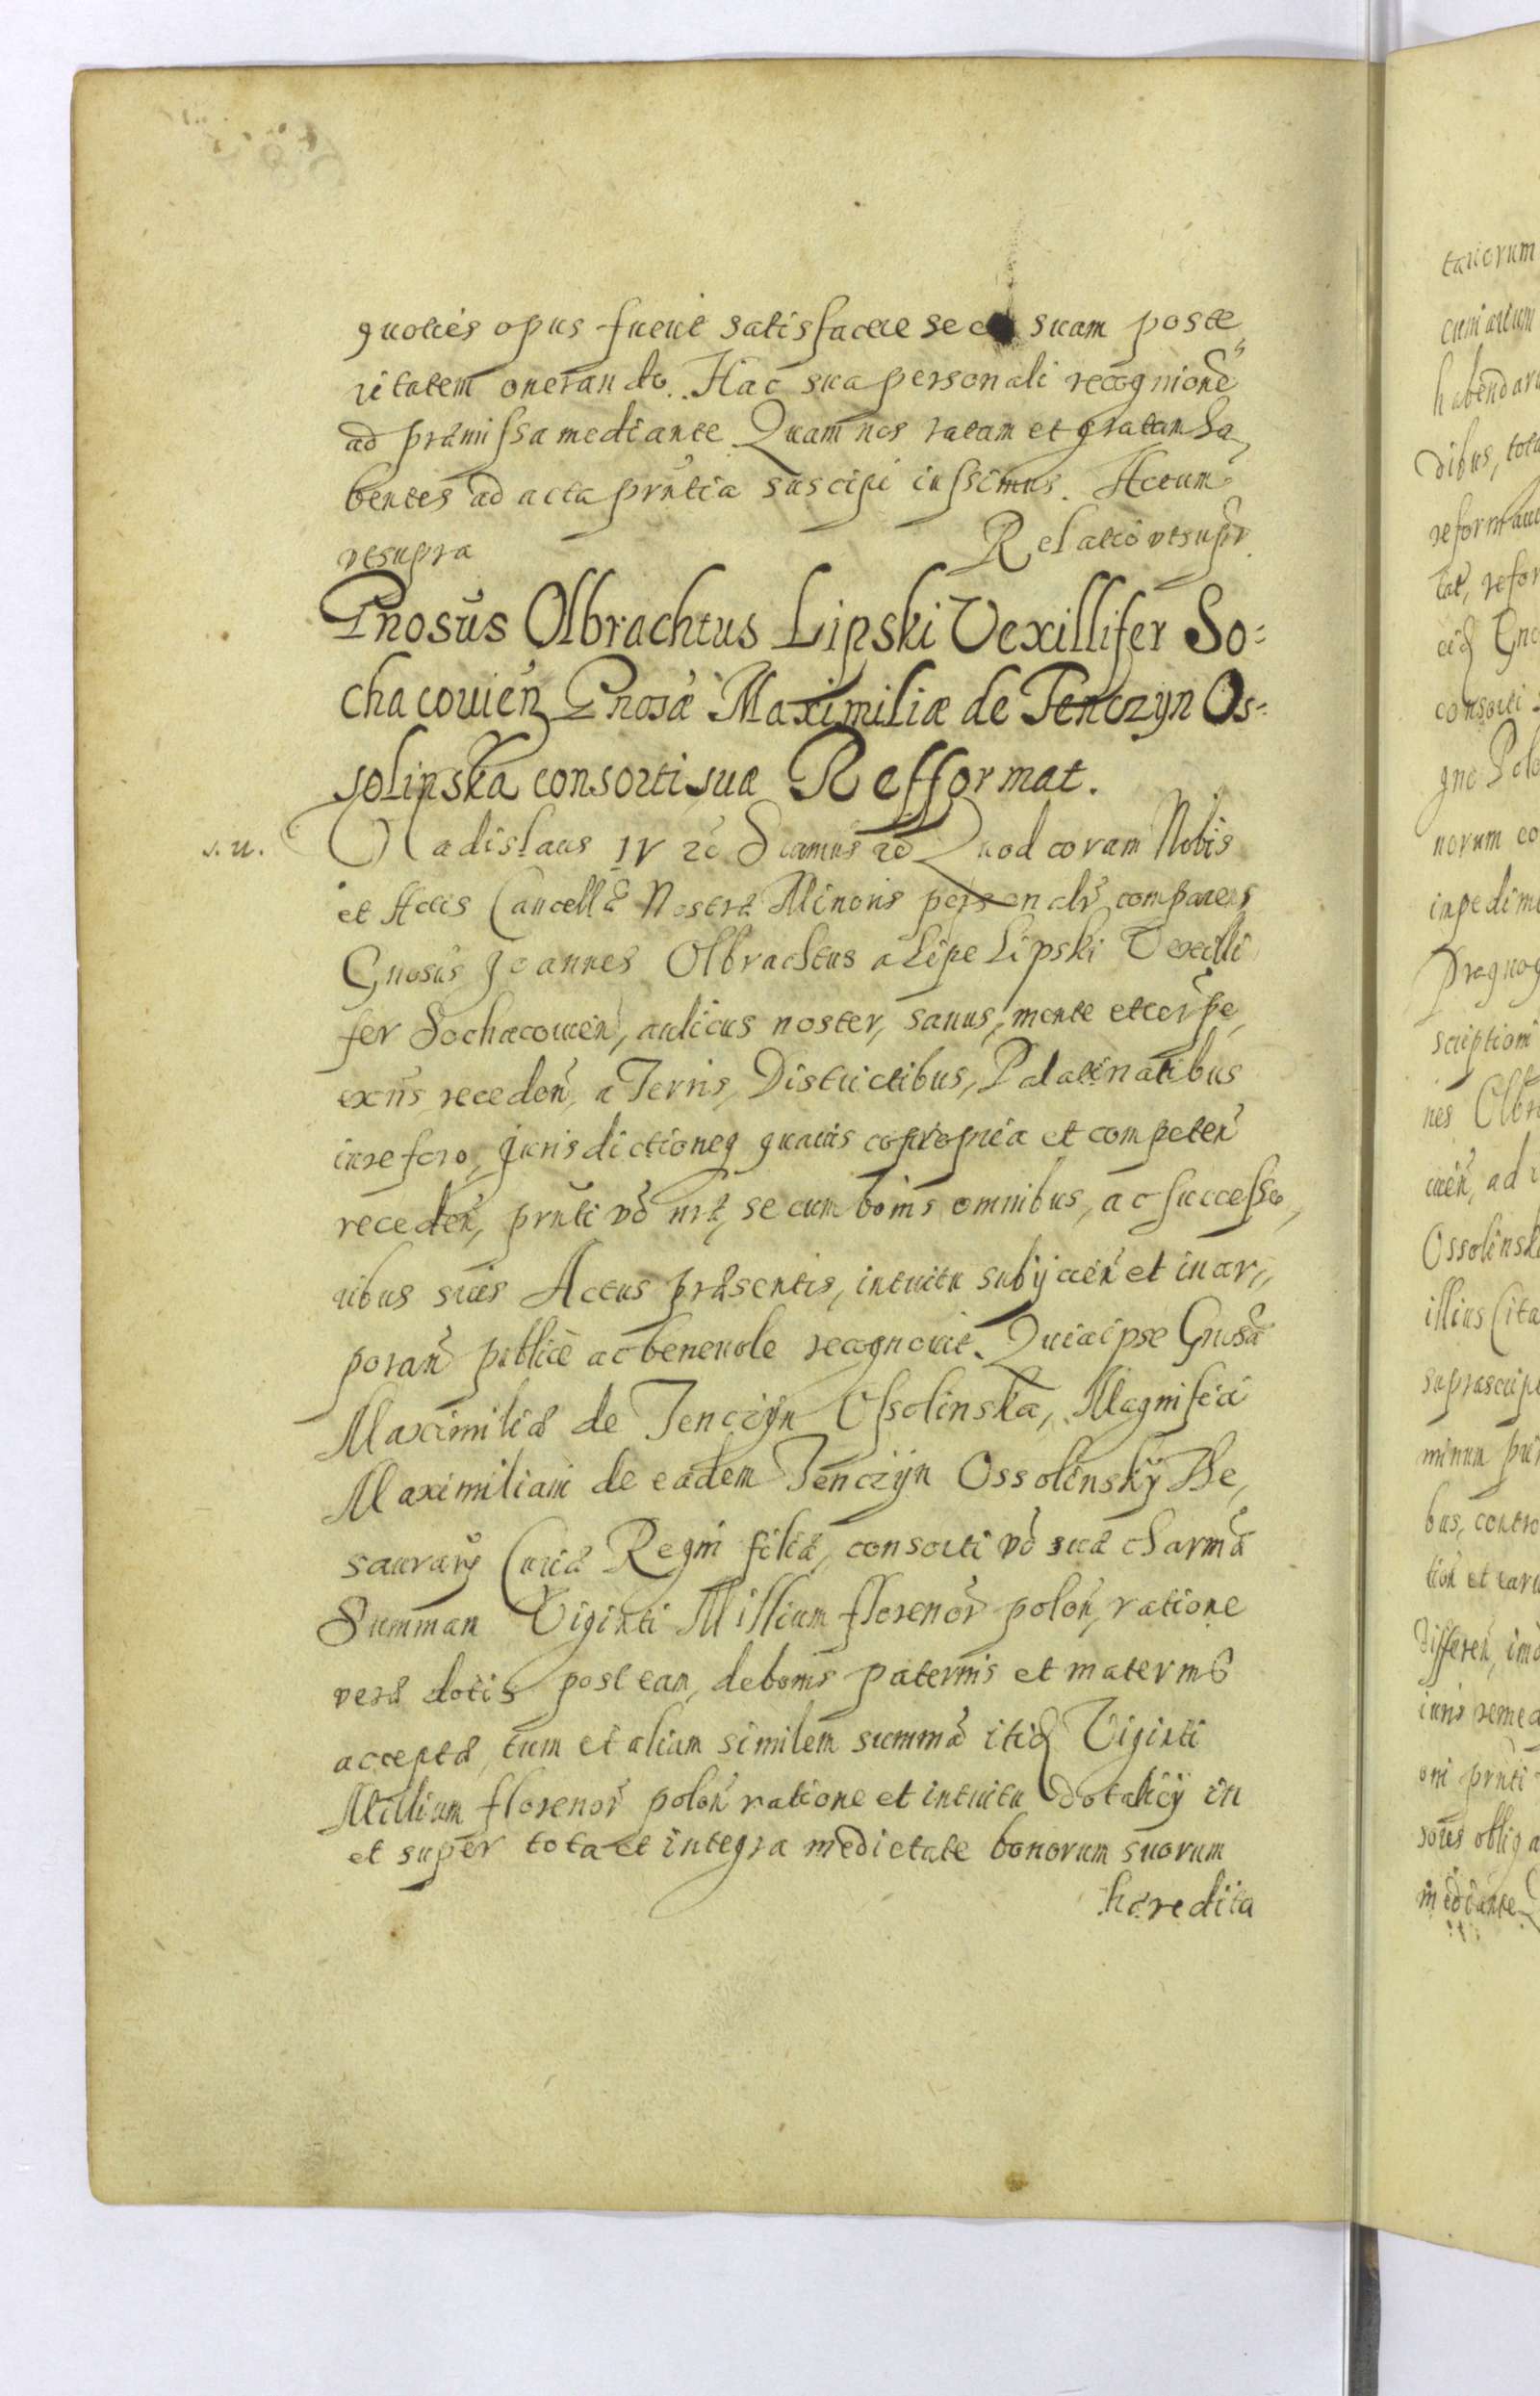 quoties opus fuerit satisfacere se et suam poste,
ritatem onerando. Hac sua personali recognione
ad præmissa mediante Quam nos ratam et gratam ha,
bentes ad acta prntia suscipi iussimus. Actum
vtsupra Relatio vtsupr.
Gnosus Olbrachtus Lipski Vexillifer So=
chacouien Gnosæ Maximiliæ de Tenczyn Os=
solinska consorti suæ Refformat.
s. u. Vladislaus IV &c Siamus &c Quod coram Nobis
et Actis Cancellæ Nostræ Minoris personalr comparens
Gnosus Joannes Olbrachtus a Lipe Lipski Vexilli
fer Sochacouien, aulicus noster, sanus, mente et corpe,
exns receden, a Terris, Districtibus, Palatinatibus
iure foro, Jurisdictioneq quauis copropria et competen
receden, prnti vo nræ, se cum bonis omnibus, ac successo,
ribus suis Actus præsentis, intuitu subijcien et incor,,
poran publice ac benevole recognouit. Quia ipse Gnosæ
Maximiliæ de Tenczyn Ossolinska, Magnifici
Maximiliani de eadem Tenczyn Ossolinsky The,
saurarij Curiæ Regni filiæ, consorti vo suæ charmæ
Summam Viginti Millium florenor polon, ratione
veræ dotis post eam, de bonis paternis et maternis
acceptæ, tum et aliam similem summa itid Viginti
Millium florenor polon ratione et intuitu dotalicij in
et super tota et integra medietate bonorum suorum
hæredita
tariorum
dibus, tota
consorti
norum
impedime
scription
nes Olbr
Ossolinsk
illius Cita
minun
bus, contro
mediante